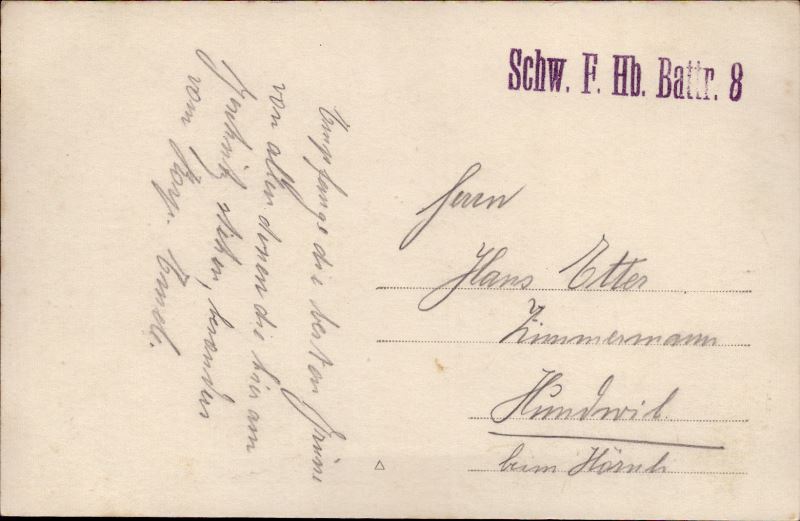 Schw. F. Hb. Battr. 8
Empfange die besten Grüsse
von allen denen die hier am
stehen, besonders
vom Korp. Emil.
Herrn
Hans Etter
Zimmermann
Hundwil
beim Hörnli